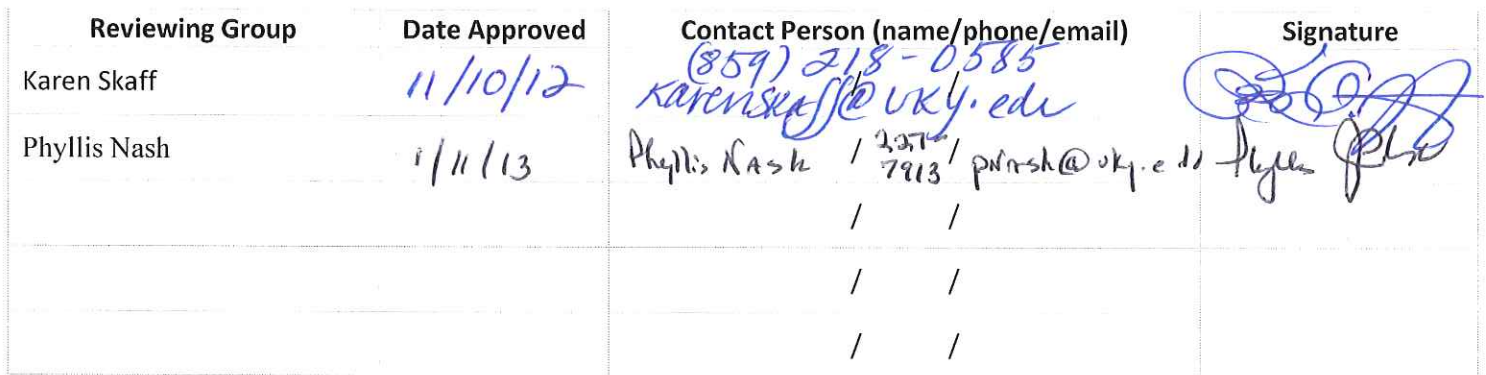 Reviewing Group Date Approved Contact Person (name/phone/email) Signature
Karen Skaff 11/10/12 (859) 218-0585
karenskaff@uky.edu
Phyllis Nash 1/11/13 Phyllis Nash / 7913 / pnash@uky.edu Phyllis
/ /
/ /
/ /